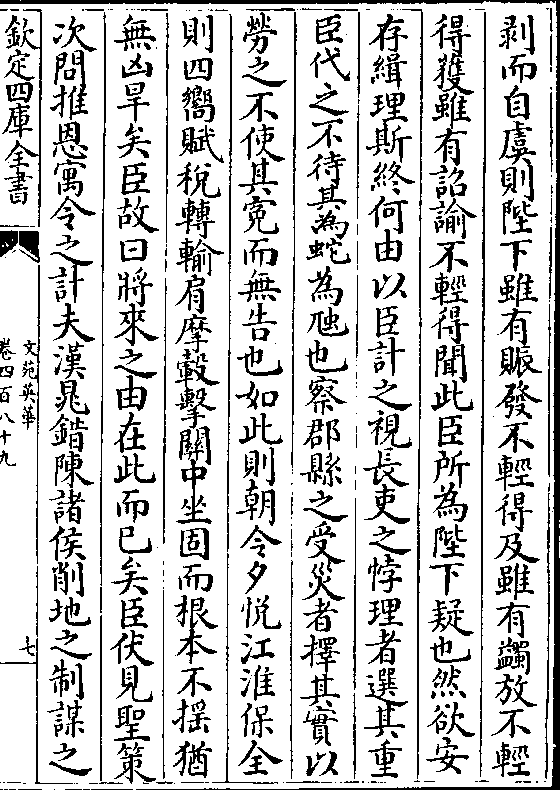 剥而自虞則陛下雖有賑發不輕得及雖有蠲放不輕
得獲雖有詔諭不輕得聞此臣所為陛下疑也然欲安
存緝理斯終何由以臣計之視長吏之悖理者選其重
臣代之不待其為蛇為虺也察郡縣之受災者擇其實以
勞之不使其寃而無告也如此則朝令夕悅江淮保全
則四嚮賦稅轉輸肩摩轂擊關中坐固而根本不揺猶
無凶旱矣臣故曰將來之由在此而已矣臣伏見聖策
次問推恩寓令之計夫漢晁錯陳諸侯削地之制謀之
欽定四庫全書
文苑英華
卷四百八十九
七